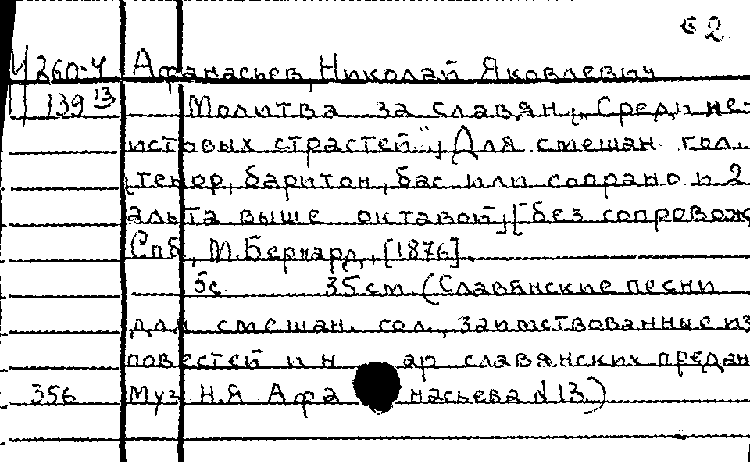 с 2
М 260-4 Афанасьев, Николай Яковлевич
139 13 Молитва за славян „Среди не-
истовых страстей", [Для смешан. гол.
тенор, баритон, бас или сопрано и 2
альта выше октавой], [без сопровож
Спб, М. Бернард, [1876].
5с 35 см (Славянские песни
для смешан. гол., заимствованные из
повестей и н ар славянских предан
356 Муз Н.Я Афа насьева N 13)